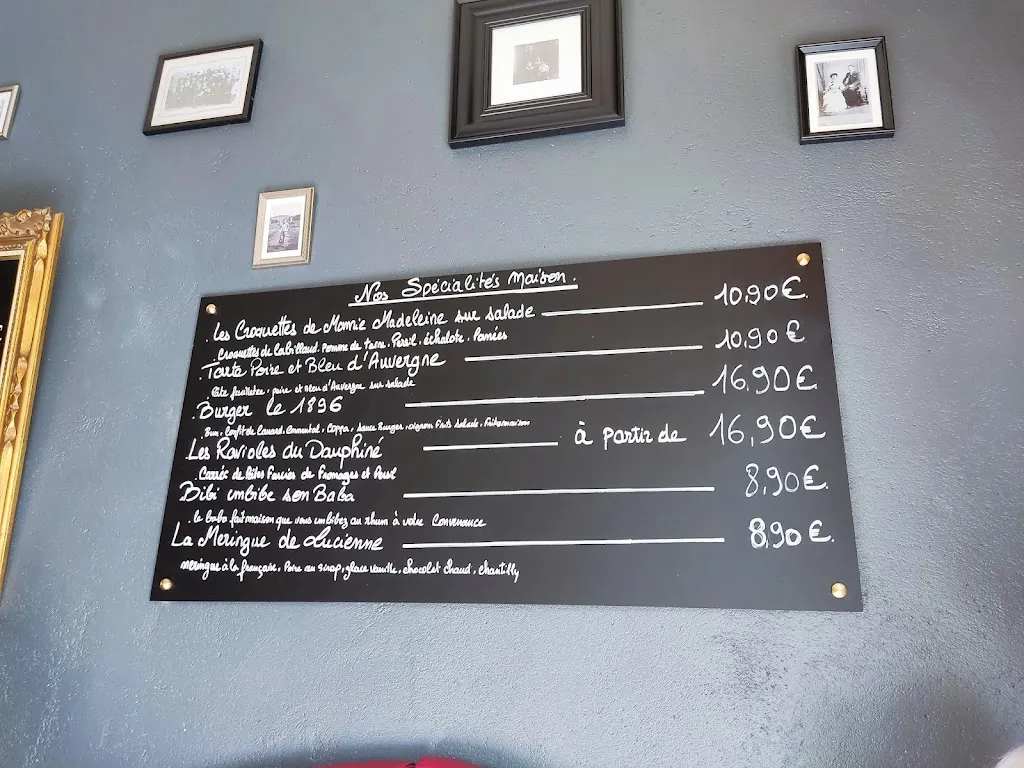 Nos Spécialités Maison.
. Les Croquettes de Mamie Madeleine sur salade 10.90€.
. Croquettes de Cabillaud. Pomme de terre. Persil. échalote. Panées
. Tarte Poire et Bleu d'Auvergne 10,90€
. Pâte feuilletée, poire et bleu d'Auvergne sur salade
. Burger le 1896 16,90€
. Bun, Confit de Canard, Emmental, Coppa, sauce Burger, oignons Frits salade, Frites maison
Les Ravioles du Dauphiné à partir de 16,90€
. Carrés de Pâtes Farcies de Fromages et Persil
Bibi imbibe son Baba 8,90€.
. le baba fait maison que vous imbibez au rhum à votre Convenance
La Meringue de Lucienne 8,90€.
meringue à la française, Poire au sirop, glace vanille, chocolat Chaud, chantilly